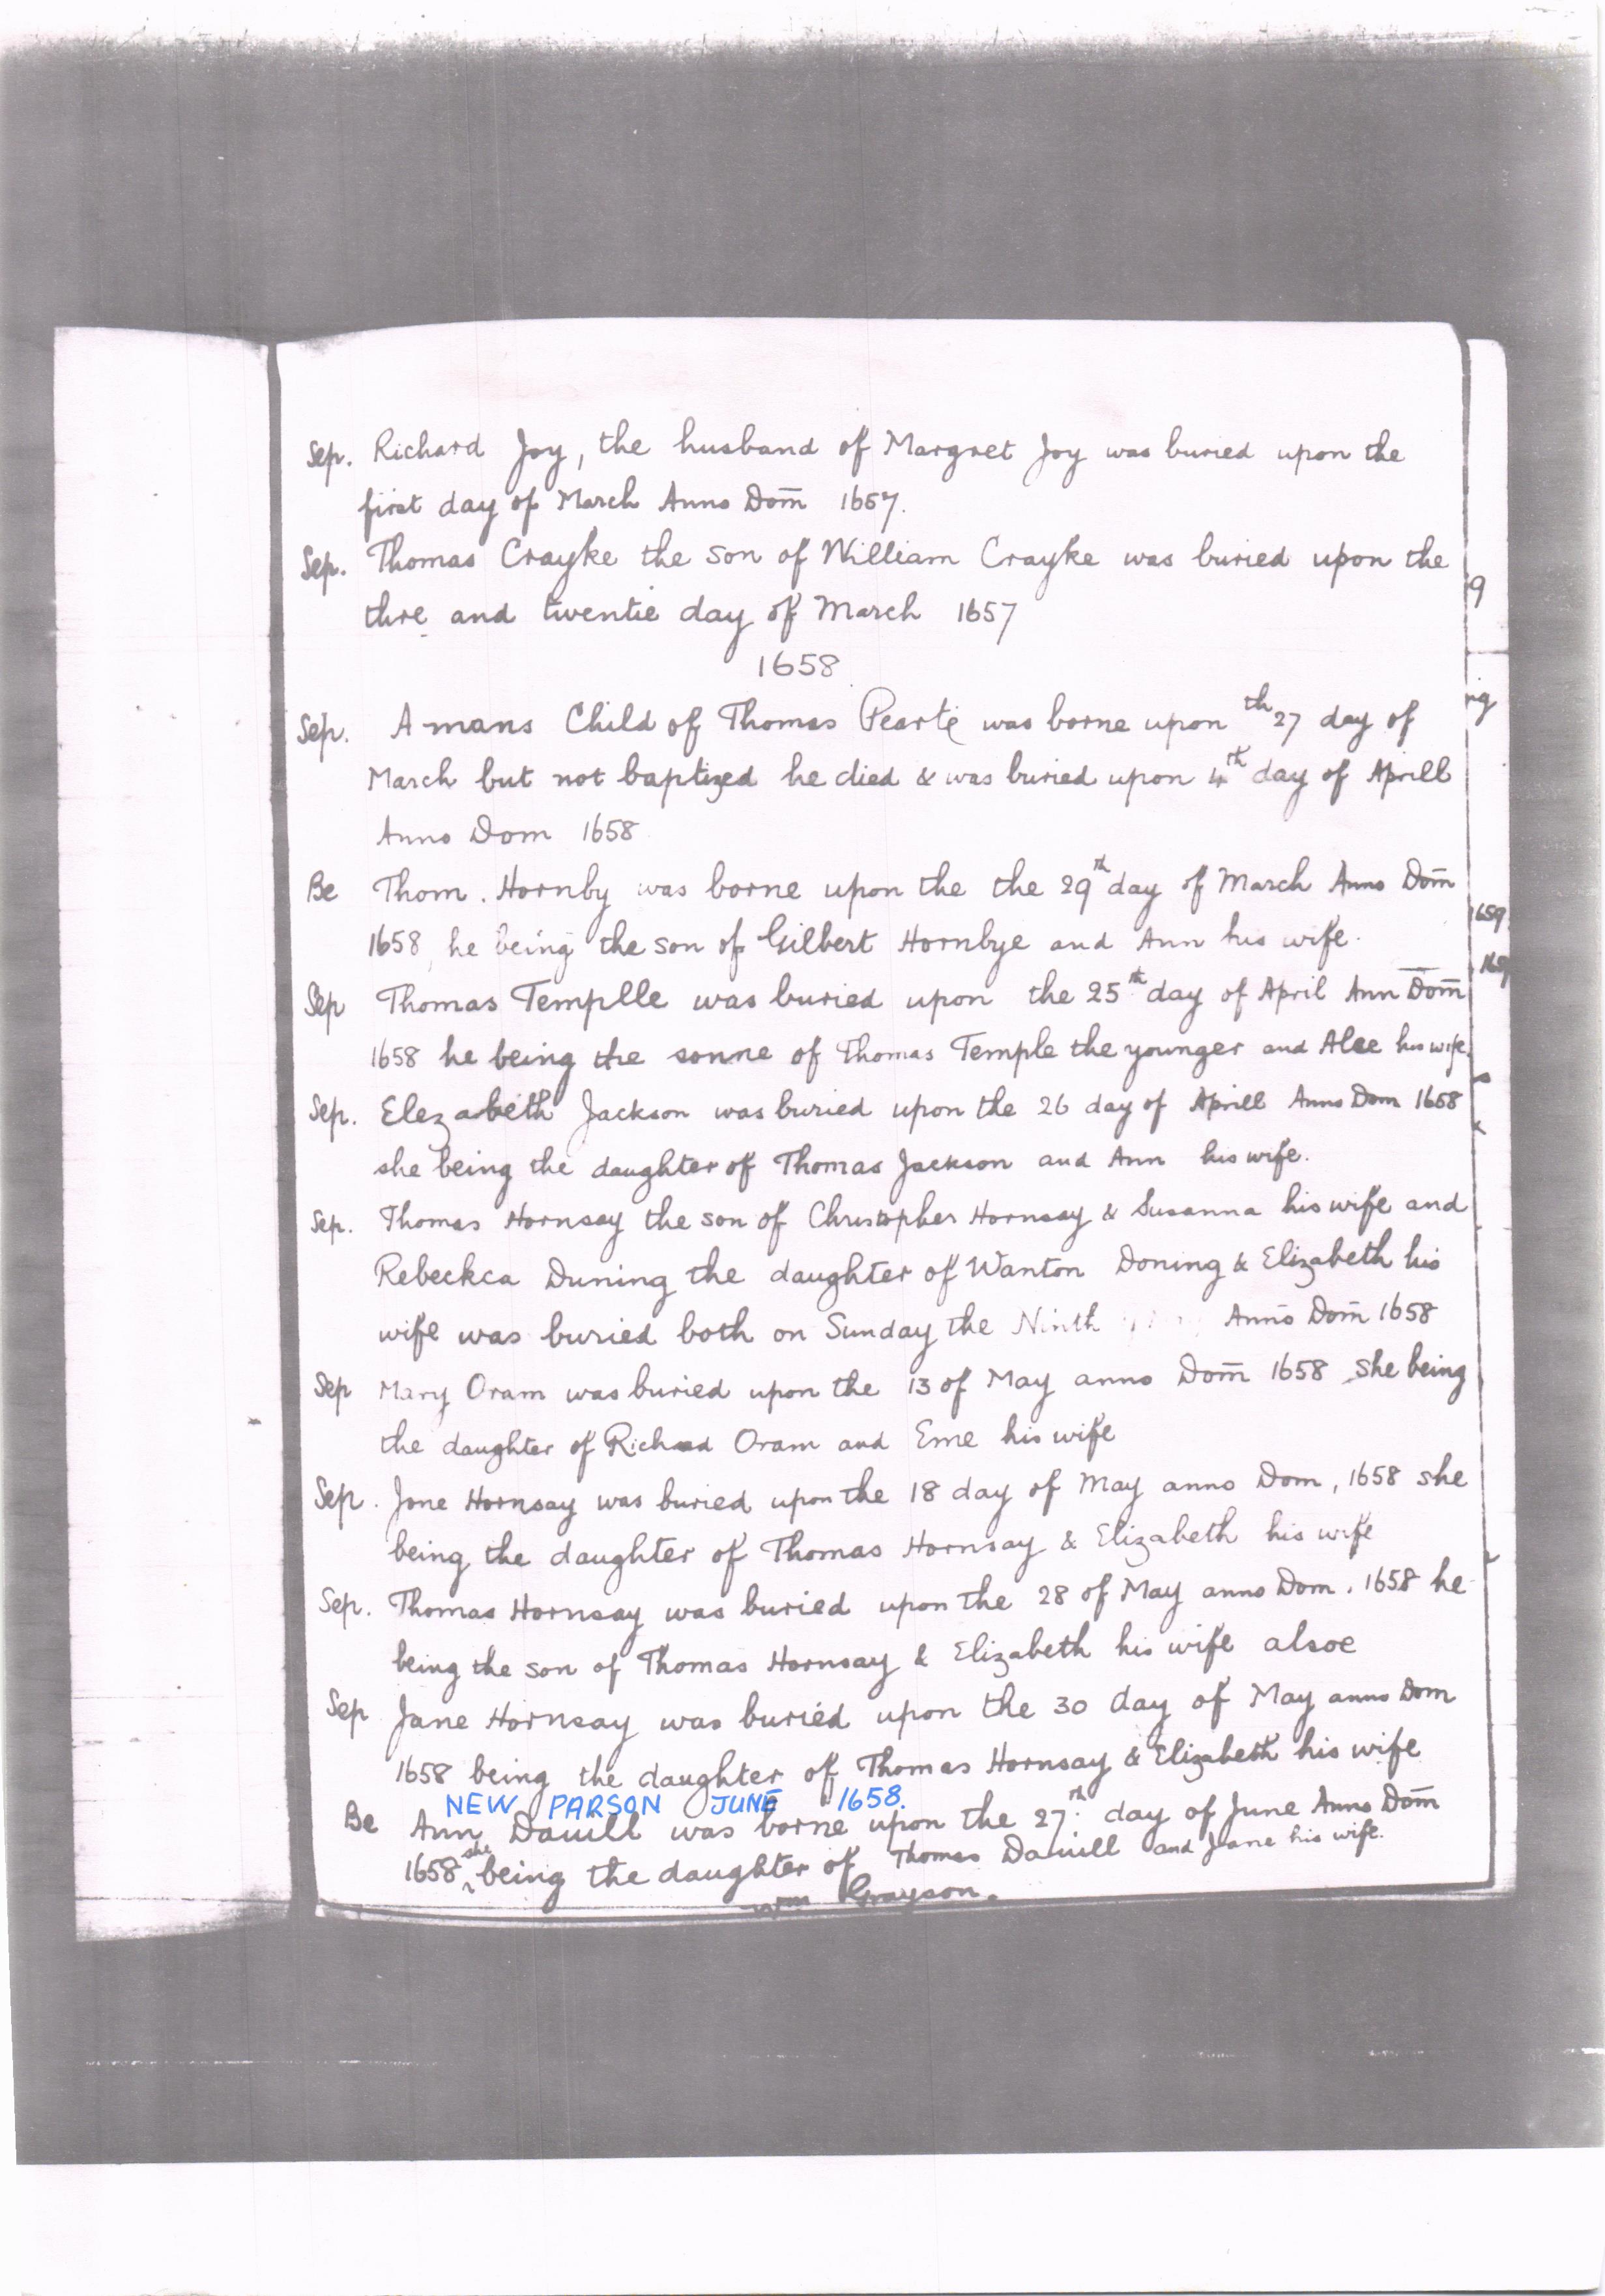 Sep. Richard Joy, the husband of Margret Joy was buried upon the
first day of March Anno Dom̄ 1657.
Sep. Thomas Crayke the son of William Crayke was buried upon the
thre and twentie day of March 1657
1658
Sep. A mans Child of Thomas Pearte was borne upon th 27 day of
March but not baptized he died & was buried upon 4th day of Aprill
Anno Dom 1658
Be Thom. Hornby was borne upon the the 29th day of March Anno Dom̄
1658, he being the son of Gilbert Hornbye and Ann his wife.
Sep Thomas Templle was buried upon the 25th day of April Ann Dom̄
1658 he being the sonne of Thomas Temple the younger and Alce his wife.
Sep. Elezabeth Jackson was buried upon the 26 day of Aprill Anno Dom 1658
she being the daughter of Thomas Jackson and Ann his wife.
Sep. Thomas Hornsay the son of Christopher Hornsay & Susanna his wife and
Rebeckca Duning the daughter of Wanton Doning & Elizabeth his
wife was buried both on Sunday the Ninth Anno Dom̄ 1658
Sep Mary Oram was buried upon the 13 of May anno Dom̄ 1658 she being
the daughter of Richard Oram and Eme his wife
Sep. Jone Hornsay was buried upon the 18 day of May anno Dom, 1658 she
being the daughter of Thomas Hornsay & Elizabeth his wife
Sep. Thomas Hornsay was buried upon the 28 of May anno Dom. 1658 he
being the son of Thomas Hornsay & Elizabeth his wife alsoe
Sep Jane Hornsay was buried upon the 30 day of May anno Dom
1658 being the daughter of Thomas Hornsay & Elizabeth his wife
NEW PARSON JUNE 1658.
Be Ann Dauill was borne upon the 27th day of June Anno Dom̄
1658 she being the daughter of Thomas Dauill and Jane his wife.
Wm Grayson.